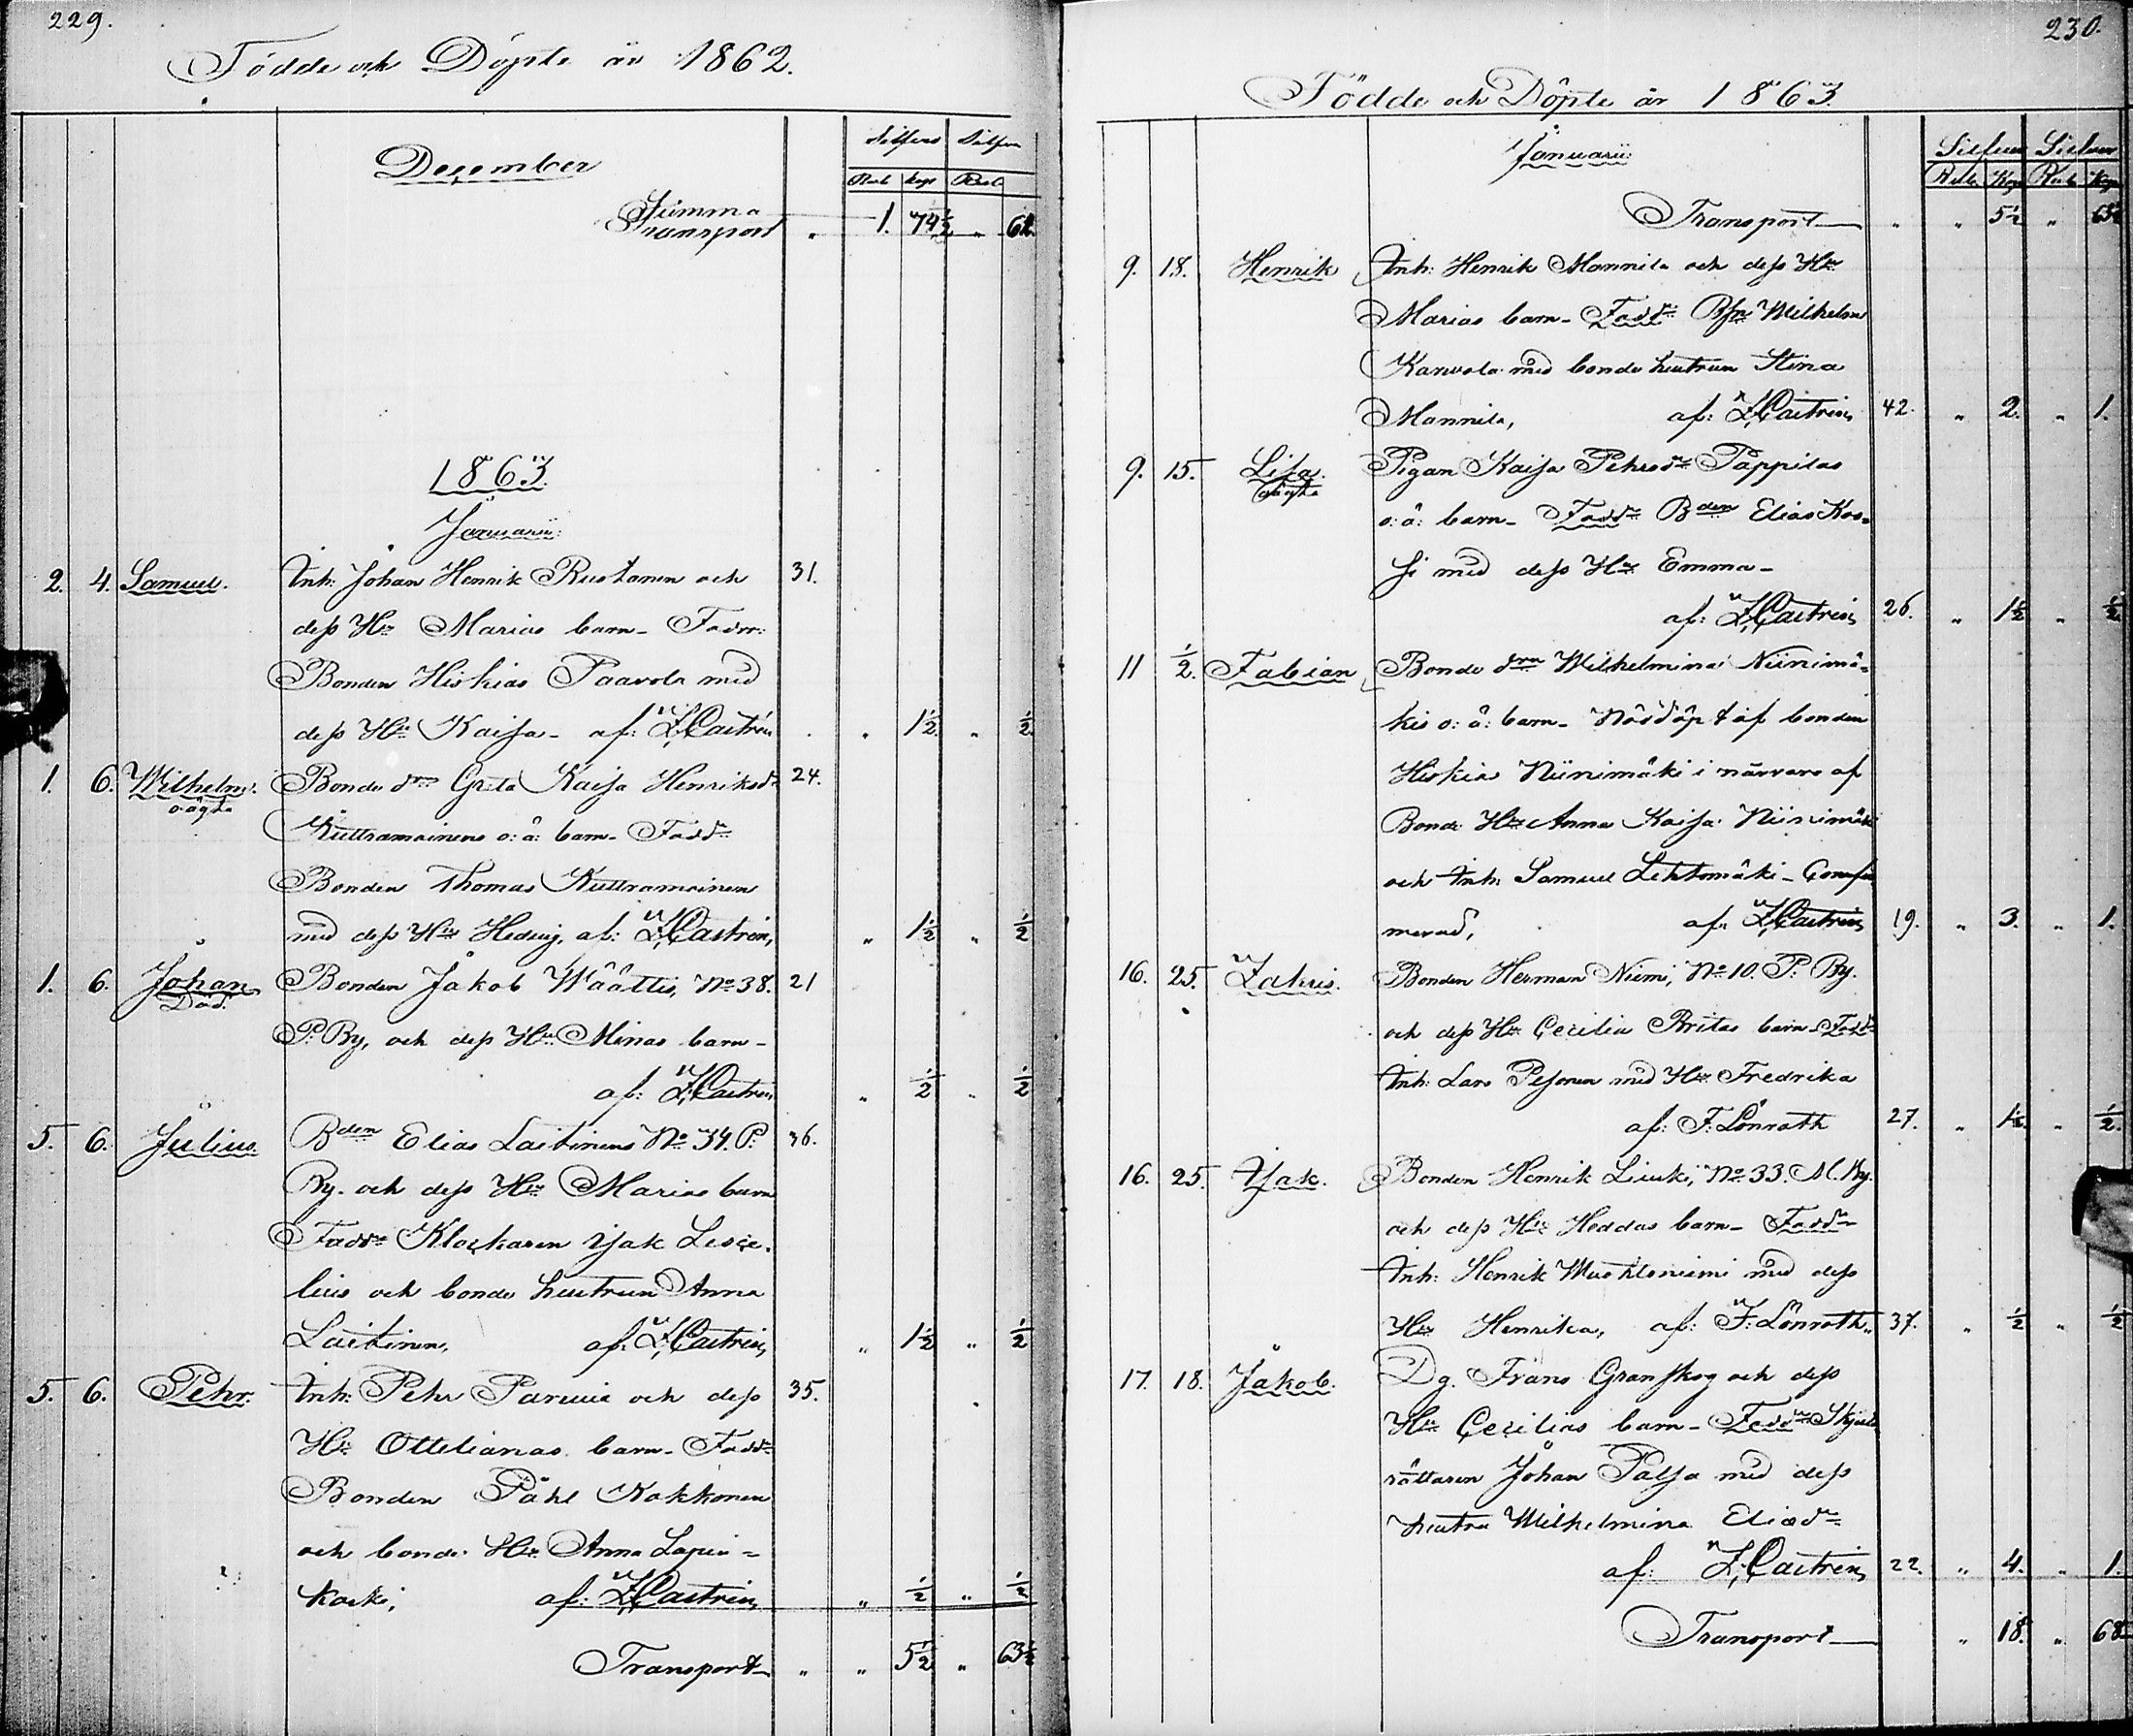 229.
Födde och Döpte år 1862.
December
Silfver Silfver
Rub Kop Rub
Summa
Transport " 1. 74½ " 62.
1863.
Januarii:
2. 4. Samuel. Inh: Johan Henrik Rustanen och 31.
dess Hu Marias barn - Faddr:
Bonden Hiskias Paavola med
dess Hu Kaisa - af: Z. Castrén " 1½ " ½
1. 6. Wilhelm. Bonde dren Greta Kaisa Henriksdr 24.
oägta
Kuttramoinens o: ä: barn - Faddr
Bonden Thomas Kuttramoinen
med dess Hu Hedvig, af: Z. Castrén, " 1½ " ½
1. 6. Johan Bonden Jakob Wäättis, No 38. 21
Död.
P. By, och dess Hu Minas barn -
af: Z. Castrén " ½ " ½
5. 6. Julius. Bden Elias Laitinens No 34. P. 36.
By. och dess Hu Marias barn
Faddr Klockaren Isak Lesce-
lius och bonde hustrun Anna
Laitinen, af: Z. Castrén, " 1½ " ½
5. 6. Pehr. Inh: Pehr Parvia och dess 35.
Hu Ottilianas barn - Faddr
Bonden Påhl Kokkonen
och bonde Hu Anna Lapin-
koski, af: Z. Castrén, " ½ " ½
Transport " " 5½ " 63½
230.
Födde och Döpte år 1863.
Januarii:
Silfver Silfver
Rub Kop Rub Kop
Transport " " 5½ " 63½
9. 18. Henrik Inh: Henrik Mannila och dess Hu
Marias barn - Faddr Bsn Wilhelm
Karvola med bonde hustrun Stina
Mannila, af: Z. Castrén, 42. " 2. " 1.
9. 15. Lisa. Pigan Kaisa Pehrsdr Pappilas
oägta
o: ä: barn - Faddr Bden Elias Kos-
si med dess Hu Emma -
af: Z. Castrén, 26. " 1½ " ½
11 ½. Fabian Bonde dren Wilhelmina Niinimä-
kis o: ä: barn - Nöddöpt af bonden
Hiskias Niinimäki i närvaro af
Bonde Hu Anna Kaisa Niinimäki
och Inh: Samuel Lehtomäki - Confir
merad, af: Z. Castrén, 19. " 3. " 1.
16. 25. Zakris. Bonden Herman Niemi, No 10. P. By.
och dess Hu Cecilia Britas barn - Faddr
Inh: Lars Pesonen med Hu Fredrika
af: F. Lönroth 27. " 1½ " ½
16. 25. Isak. Bonden Henrik Liuski, No 33. M. By.
och dess Hu Heddas barn - Faddr
Inh: Henrik Mustloniemi med dess
Hu Henrika, af: F. Lönroth " 37. " ½ " ½
17. 18. Jakob. Dg. Frans Granskog och dess
Hu Cecilias barn - Faddr Skjuts
rättaren Johan Palsa med dess
hustru Wilhelmina Eliædr
af: Z. Castrén, 22. " 4. " 1.
Transport " 18. " 68